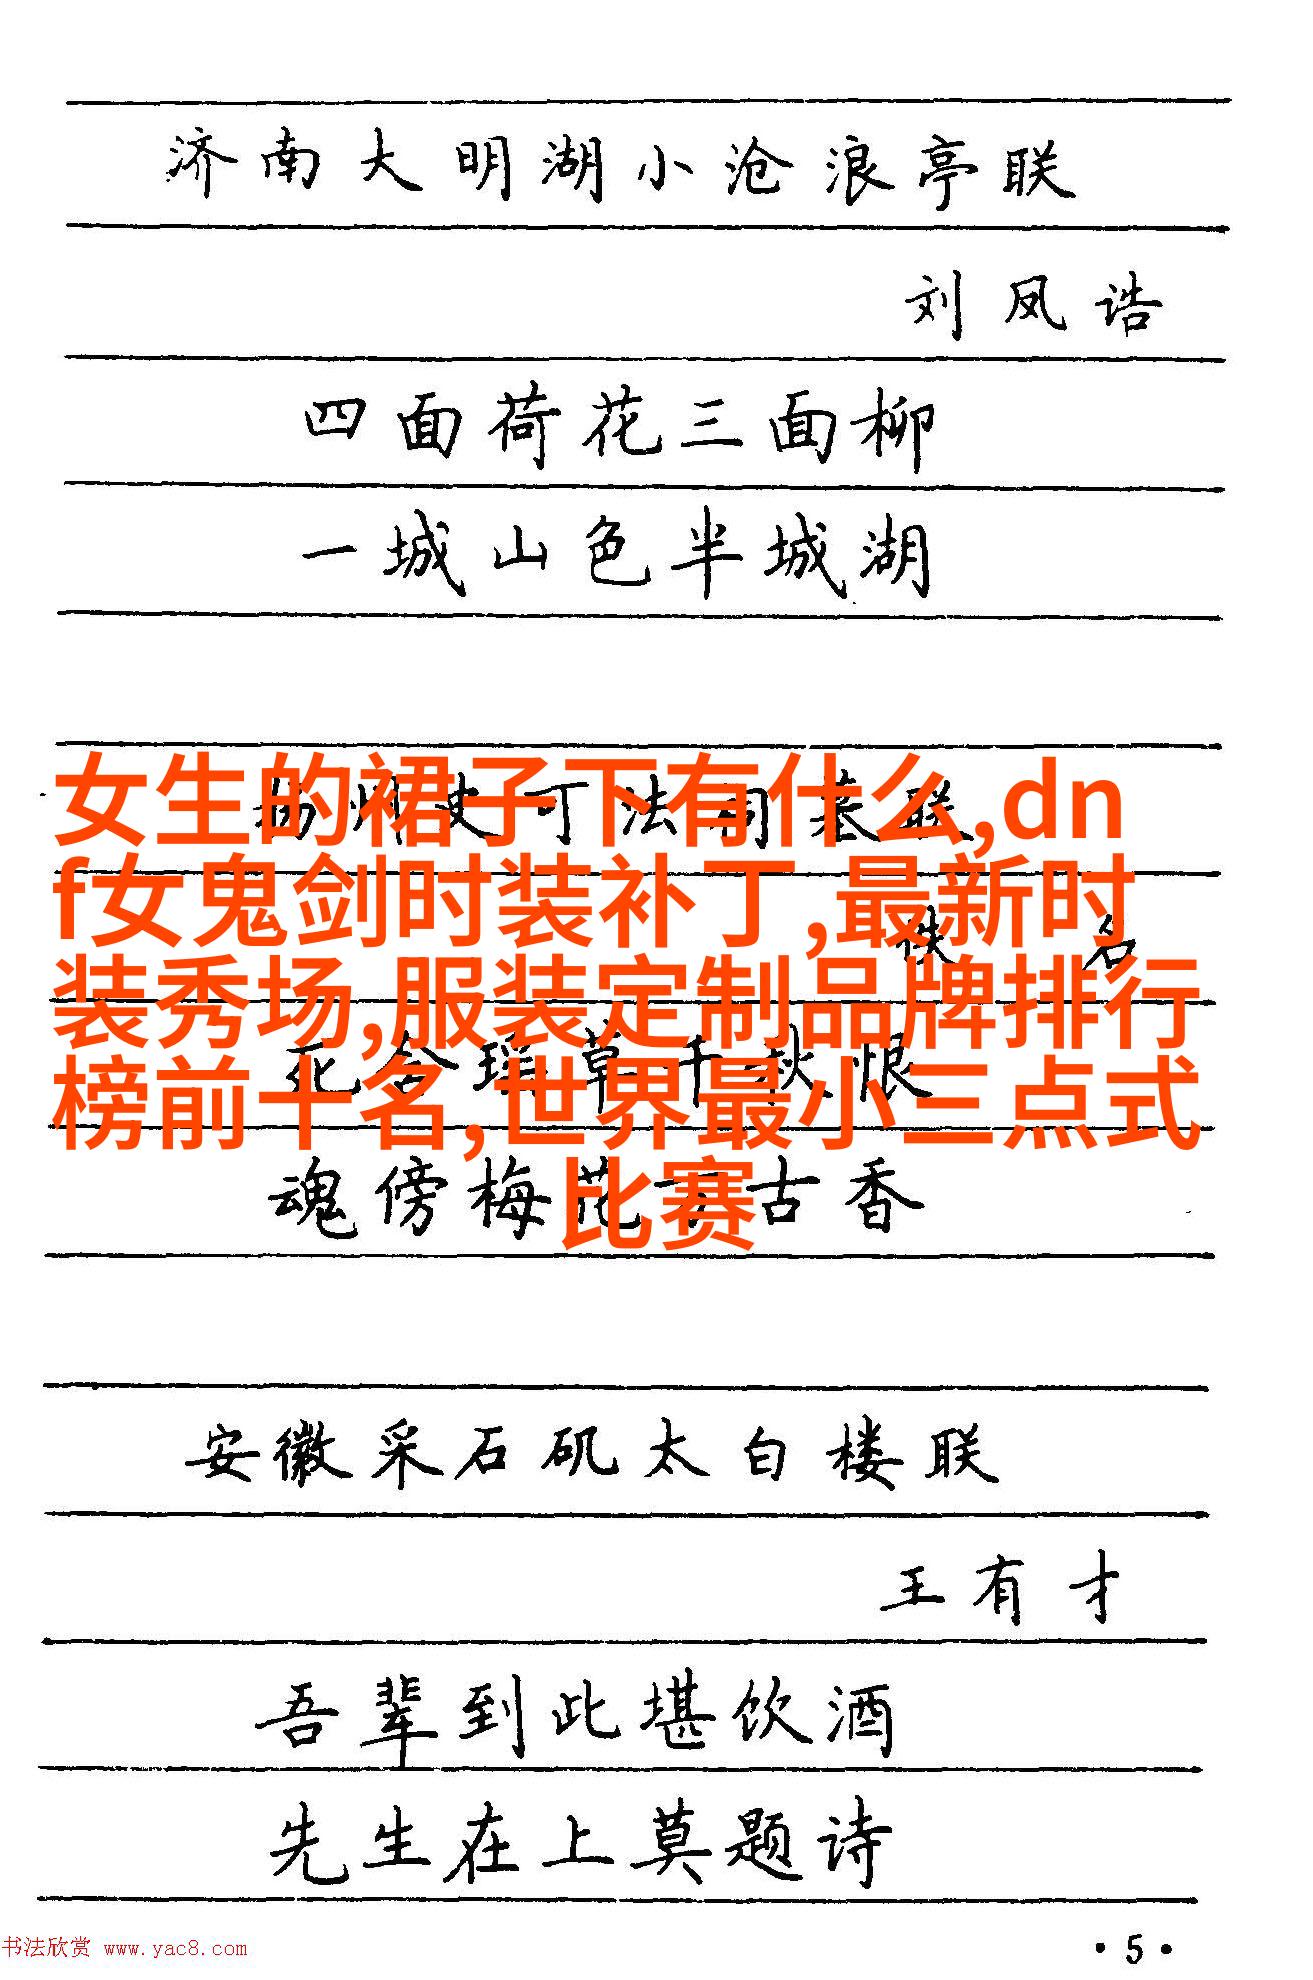 济南大明湖小沧浪亭联
刘凤诰
四面荷花三面柳
一城山色半城湖
女生的裙子下有什么,dn
f女鬼剑时装补丁,最新时
装秀场,服装定制品牌排行
榜前十名,世界最小三点式
比赛
扬州史可法祠墓联
佚名
千秋恨
魂傍梅花 古香
安徽采石矶太白楼联
王有才
吾辈到此堪饮酒
先生在上莫题诗
书法欣赏 www.yac8.com
·5·